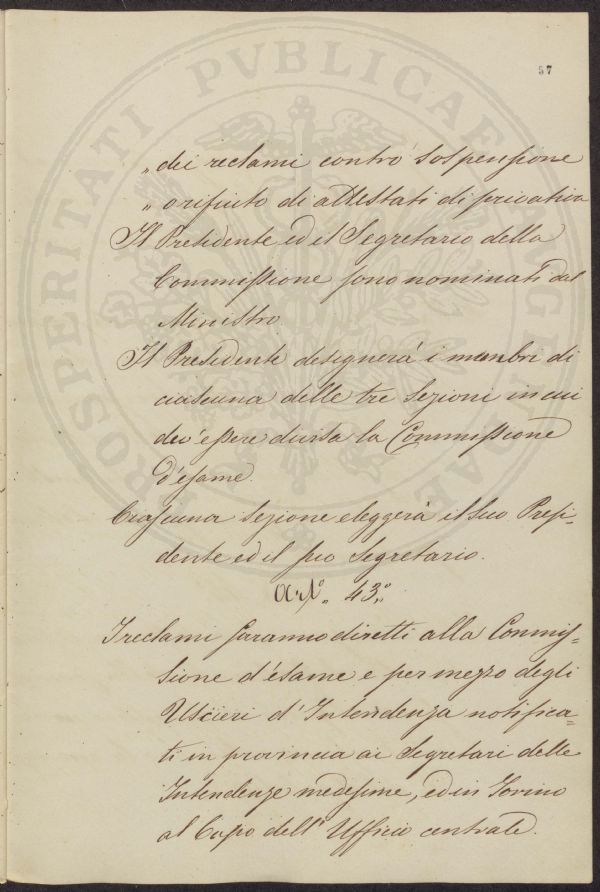 PROSPERITATI PVBLICAE AVGENDAE
57
„ dei reclami contro sospensione
„ o rifiuto di attestati di privativa
Il Presidente ed il Segretario della
Commissione sono nominati dal
Ministro.
Il Presidente designerà i membri di
ciascuna delle tre Sezioni in cui
dev'essere divisa la Commissione
d'esame.
Ciascuna Sezione eleggerà il suo Presi-
dente ed il suo Segretario.
Art.° 43.°
I reclami saranno diretti alla Commis-
sione d'esame e per mezzo degli
Uscieri d'Intendenza notifica-
ti in provincia ai Segretari delle
Intendenze medesime, ed in Torino
al Capo dell'Ufficio centrale.